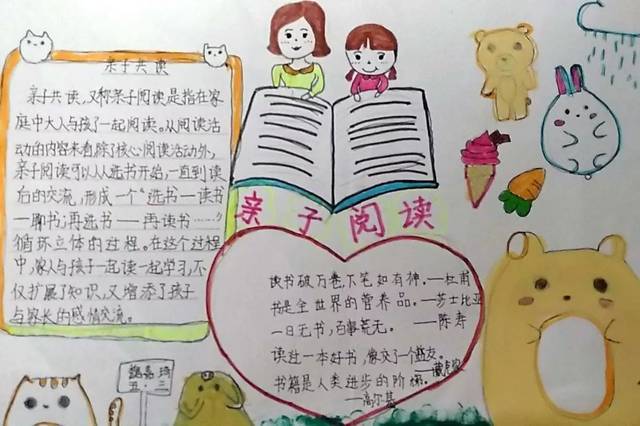 亲子共读
亲子共读,又称亲子阅读是指在家
庭中大人与孩子一起阅读。从阅读活
动的内容来看除了核心阅读活动外,
亲子阅读可以从选书开始,一直到读
后的交流,形成一个“选书一读书
一聊书;再选书——再读书……”
循环立体的过程。在这个过程
中,家人与孩子一起读一起学习,不
仅扩展了知识,又增添了孩子
与家长的感情交流。
亲子阅读
读书破万卷,下笔如有神。—杜甫
书是全世界的营养品。—莎士比亚
一日无书,百事荒无。——陈寿
读过一本好书,像交了一个益友。
—臧克家
书籍是人类进步的阶梯。
—高尔基
五·三